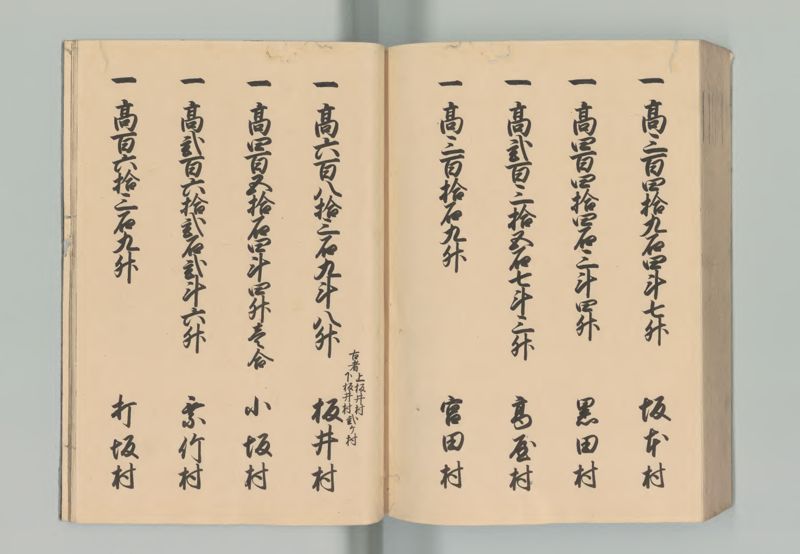 一 高三百四拾九石四斗七升 坂本村
一 高四百四拾四石三斗四升 黒田村
一 高弐百三拾五石七斗三升 高屋村
一 高三百拾石九升 宮田村
古者上板井村
下板井村弐ケ村
一 高六百八拾三石九斗八升 板井村
一 高四百五拾石四斗四升壱合 小坂村
一 高弐百六拾弐石弐斗六升 乗竹村
一 高百六拾三石九升 打坂村